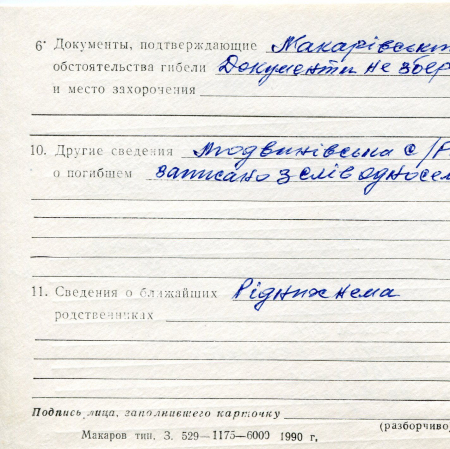 6· Документы, подтверждающие Макарівськ
обстоятельства гибели Документи не збер
и место захоронения
10. Другие сведения Людвинівська с/Р
о погибшем записано з слів односел
11. Сведения о ближайших Рідних нема
родственниках
Подпись лица, заполнившего карточку
(разборчиво
Макаров тип. З. 529—1175—6000 1990 г,